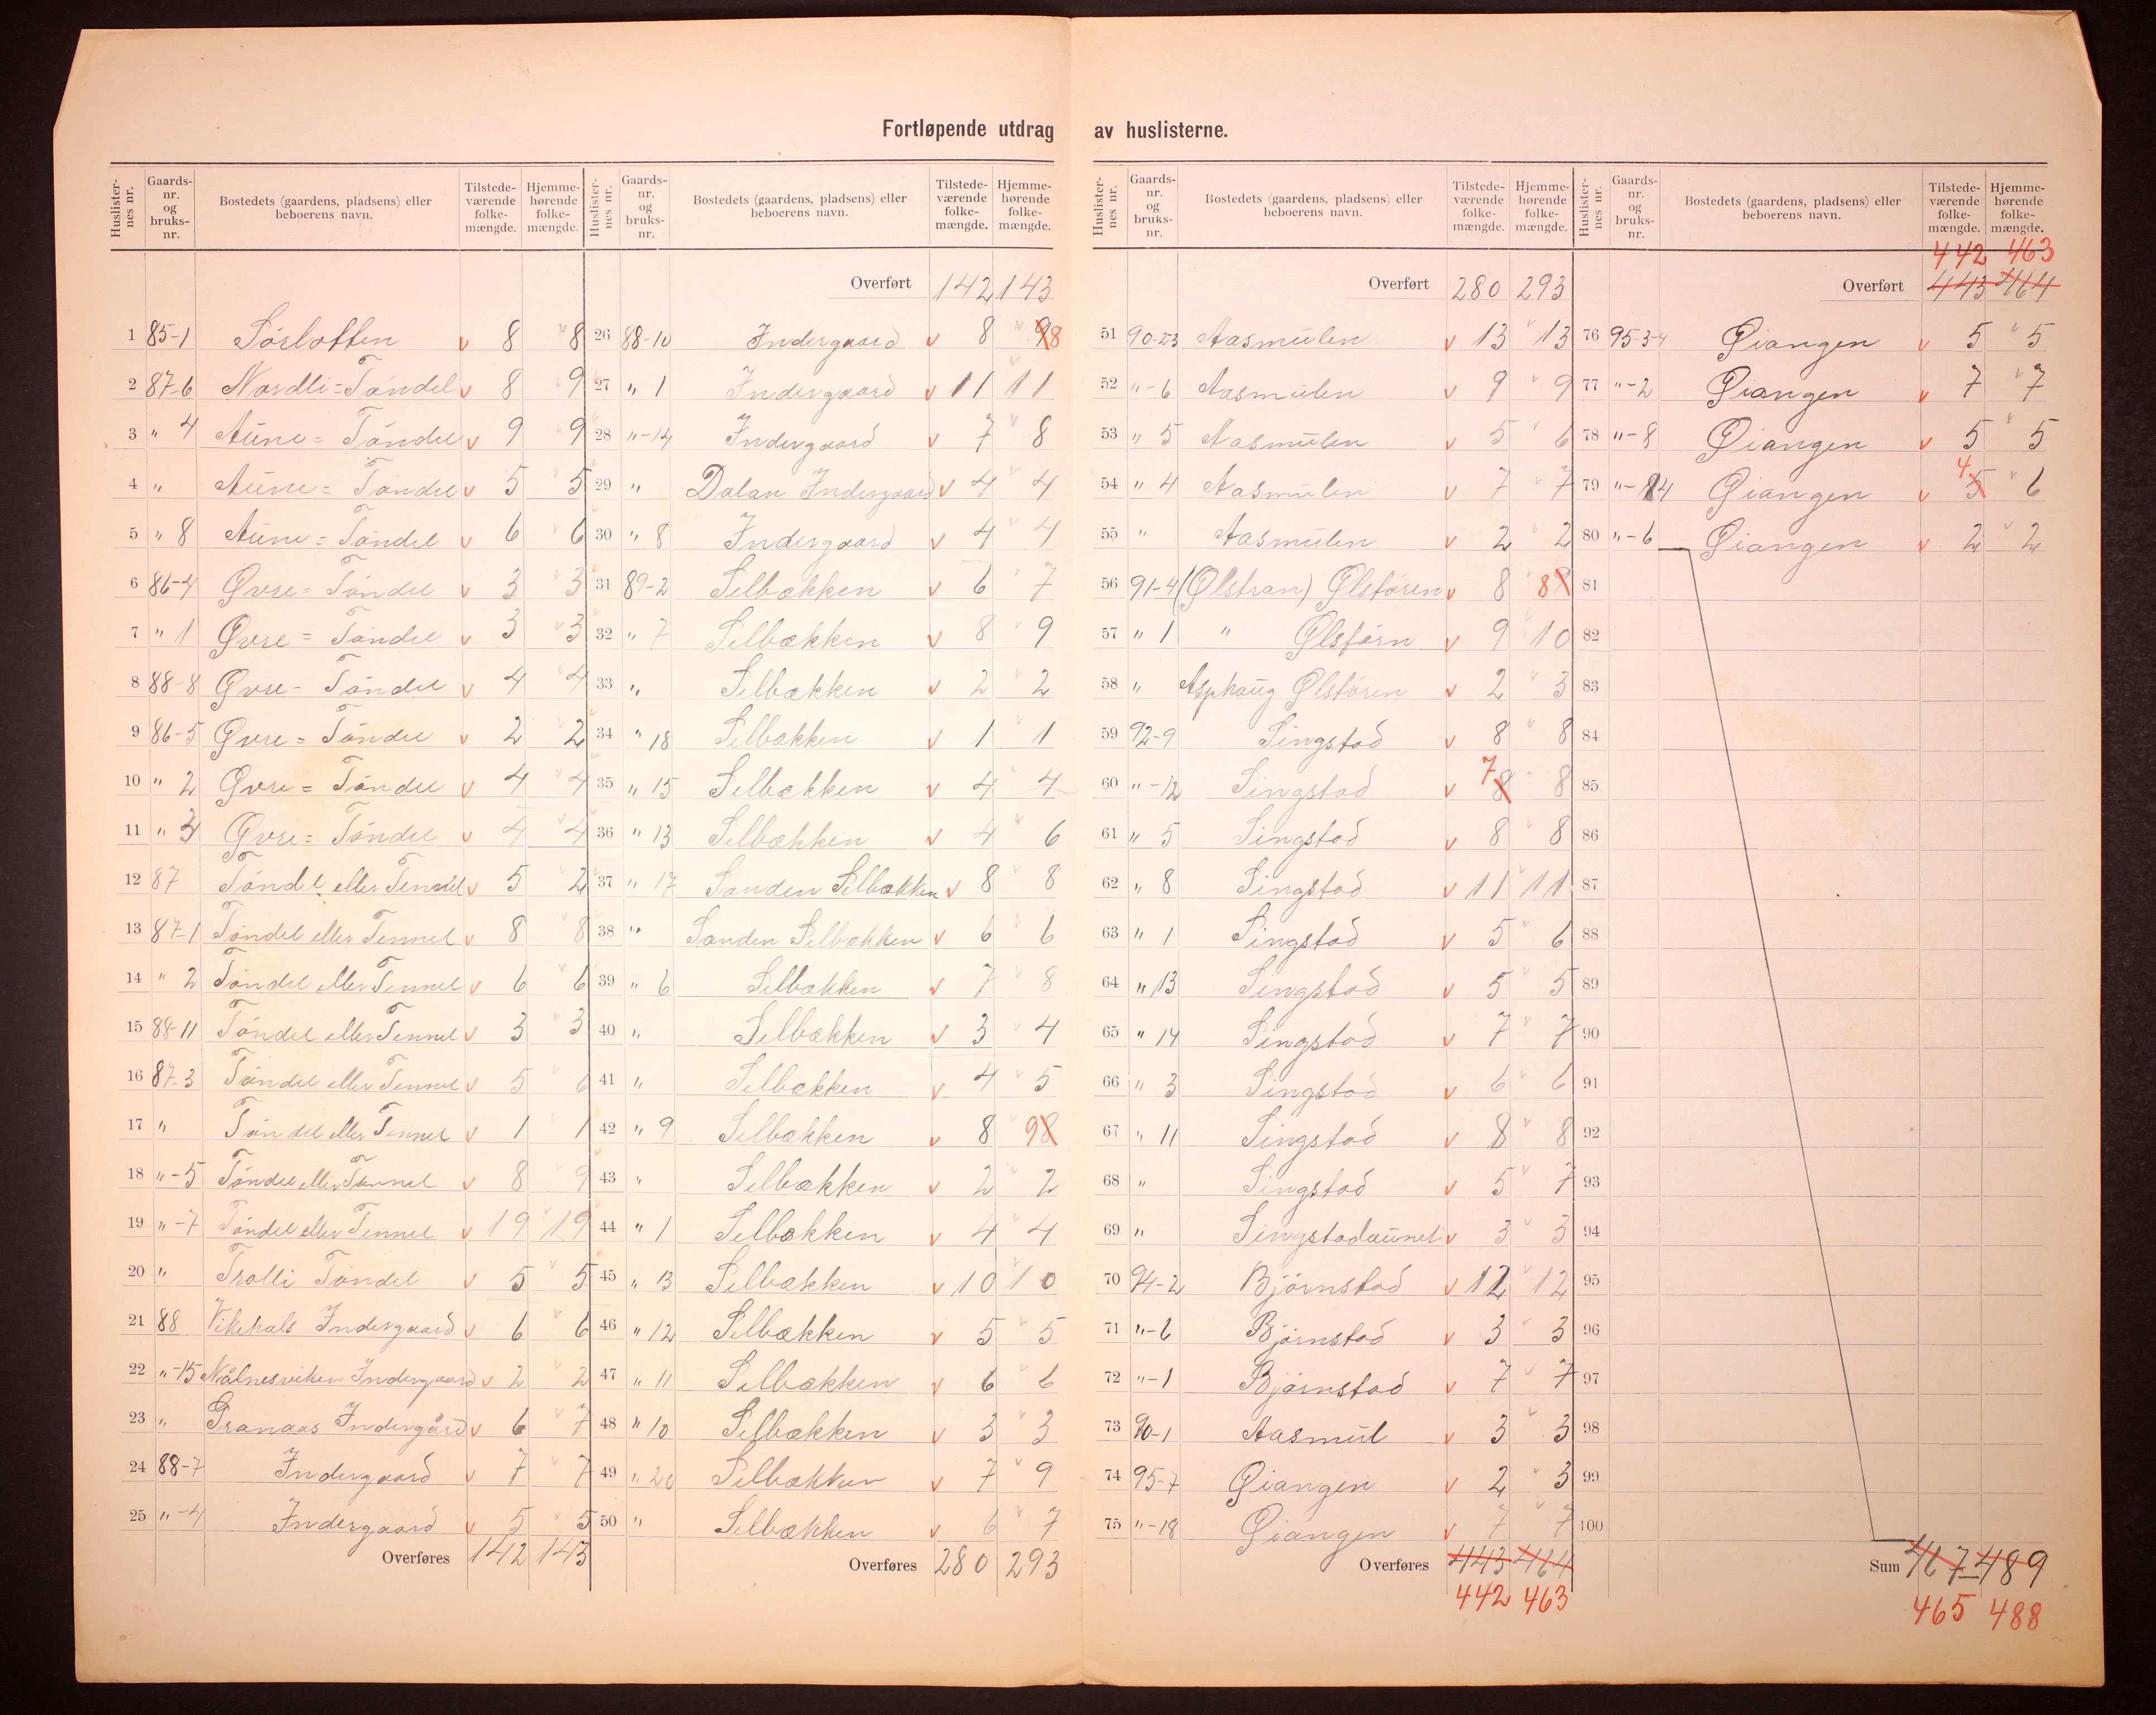 Fortløpende utdrag av huslisterne.
Huslisternes nr. | Gaardsnr. og bruksnr. | Bostedets (gaardens, pladsens) eller beboerens navn. | Tilstedeværende folkemængde. | Hjemmehørende folkemængde.
1 85-1 Sörlotten v 8 v 8
2 87-6 Nordli=Töndel v 8 v 9
3 " 4 Aune=Töndel v 9 9
4 " Aune=Töndel v 5 v 5
5 " 8 Aune=Töndel v 6 v 6
6 86-4 Øvre=Töndel v 3 v 3
7 " 1 Øvre=Töndel v 3 v 3
8 88-8 Øvre-Töndel v 4 v 4
9 86-5 Øvre=Töndel v 2 v 2
10 " 2 Øvre=Töndel v 4 v 4
11 " 3 Øvre=Töndel v 4 v 4
12 87 Töndel eller Tennel v 5 2
13 87-1 Töndel eller Tennel v 8 v 8
14 " 2 Töndel eller Tennel v 6 v 6
15 88-11 Töndel eller Tennel v 3 v 3
16 87-3 Töndel eller Tennel v 5 v 6
17 " Töndel eller Tennel v 1 v 1
18 "-5 Töndel eller Tennel v 8 v 9
19 "-7 Töndel eller Tennel v 19 v 19
20 " Trolli Töndel v 5 v 5
21 88 Vikehals Indergaard v 6 v 6
22 "-15 Målnesviken Indergaard v 2 v 2
23 " Granaas Indergård v 6 v 7
24 88-7 Indergaard v 7 v 7
25 "-4 Indergaard v 5 v 5
Overføres 142 143
Huslisternes nr. | Gaardsnr. og bruksnr. | Bostedets (gaardens, pladsens) eller beboerens navn. | Tilstedeværende folkemængde. | Hjemmehørende folkemængde.
Overført 142 143
26 88-10 Indergaard v 8 v 9 8
27 " 1 Indergaard v 11 v 11
28 "-14 Indergaard v 7 v 8
29 " Dalan Indergaard v 4 v 4
30 " 8 Indergaard v 4 v 4
31 89-2 Selbækken v 6 v 7
32 " 7 Selbækken v 8 v 9
33 " Selbækken v 2 v 2
34 " 18 Selbækken v 1 v 1
35 " 15 Selbækken v 4 v 4
36 " 13 Selbækken v 4 v 6
37 " 17 Sanden Selbækken v 8 v 8
38 " Sanden Selbækken v 6 v 6
39 " 6 Selbækken v 7 v 8
40 " Selbækken v 3 v 4
41 " Selbækken v 4 v 5
42 " 9 Selbækken v 8 v 9 8
43 " Selbækken v 2 v 2
44 " 1 Selbækken v 4 v 4
45 " 13 Selbækken v 10 v 10
46 " 12 Selbækken v 5 v 5
47 " 11 Selbækken v 6 v 6
48 " 10 Selbækken v 3 v 3
49 " 20 Selbækken v 7 v 9
50 " Selbækken v 6 v 7
Overføres 280 293
Huslisternes nr. | Gaardsnr. og bruksnr. | Bostedets (gaardens, pladsens) eller beboerens navn. | Tilstedeværende folkemængde. | Hjemmehørende folkemængde.
Overført 280 293
51 90-2-3 Aasmulen v 13 v 13
52 "-6 Aasmulen v 9 v 9
53 " 5 Aasmulen v 5 v 6
54 " 4 Aasmulen v 7 v 7
55 " Aasmulen v 2 v 2
56 91-4 (Ølstran) Ølstören v 8 8
57 " 1 " Ølstörn v 9 10
58 " Asphaug Ølstören v 2 v 3
59 92-9 Singstad v 8 v 8
60 "-12 Singstad v 7 8 8
61 " 5 Singstad v 8 v 8
62 " 8 Singstad v 11 v 11
63 " 1 Singstad v 5 v 6
64 " 13 Singstad v 5 v 5
65 " 14 Singstad v 7 v 7
66 " 3 Singstad v 6 v 6
67 " 11 Singstad v 8 v 8
68 " Singstad v 5 v 7
69 " Singstadaunet v 3 v 3
70 94-2 Björnstad v 12 v 12
71 "-6 Björnstad v 3 v 3
72 "-1 Björnstad v 7 v 7
73 90-1 Aasmul v 3 v 3
74 95-7 Øiangen v 2 v 3
75 "-18 Øiangen v 7 v 7
Overføres 443 464
442 463
Huslisternes nr. | Gaardsnr. og bruksnr. | Bostedets (gaardens, pladsens) eller beboerens navn. | Tilstedeværende folkemængde. | Hjemmehørende folkemængde.
442 463
Overført 443 464
76 95-3-4 Øiangen v 5 v 5
77 "-2 Øiangen v 7 v 7
78 "-8 Øiangen v 5 v 5
79 "-14 Øiangen v 4 5 v 6
80 "-6 Øiangen v 2 v 2
81
82
83
84
85
86
87
88
89
90
91
92
93
94
95
96
97
98
99
100
Sum 467 489
465 488